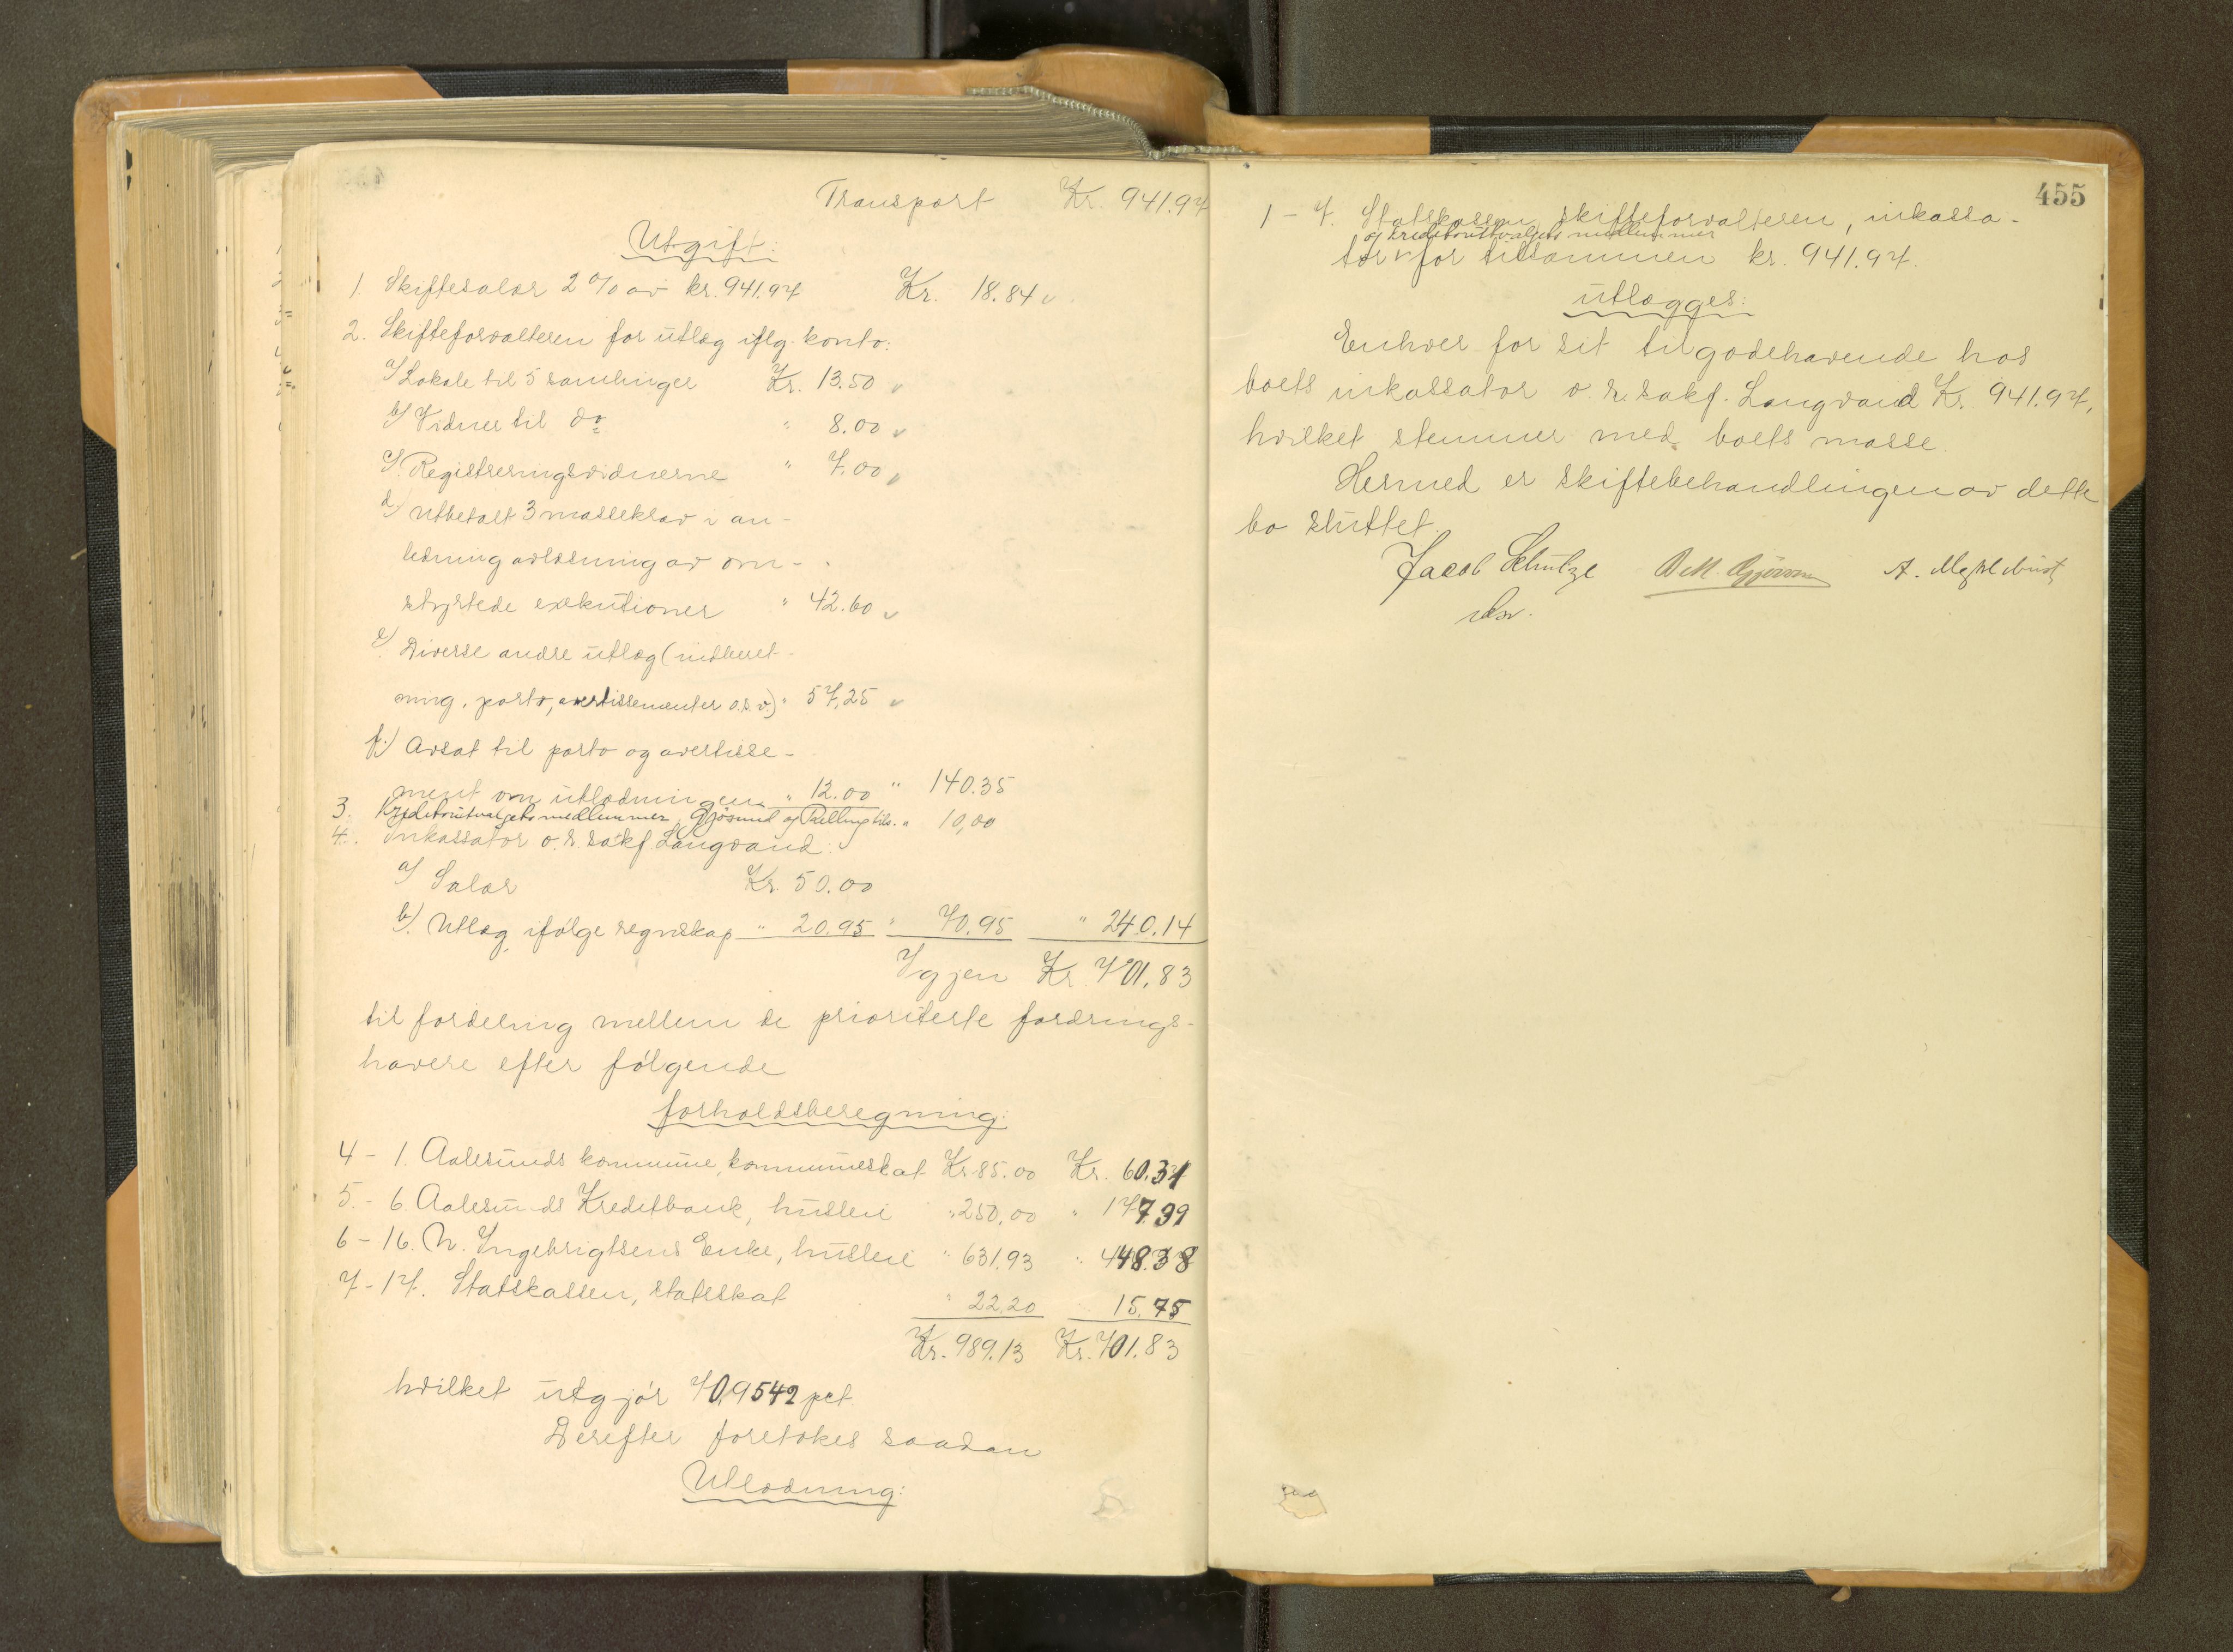 Transport Kr. 941.97
Utgift:
1. Skiftesalær 2 % av kr. 941.97 Kr. 18.84
2. Skifteforvalteren for utlæg iflg. konto:
a/ Lokale til 5 samlinger Kr. 13.50
b/ Vidner til do " 8.00
c/ Registreringsvidnerne " 7.00
d/ Utbetalt 3 massekrav i an-
ledning avlæsning av om-
styrtede exekutioner " 42.60
e/ Diverse andre utlæg (indberet-
ning, porto, avertissementer o.s.v.) " 57,25
f.) Avsat til porto og avertisse-
ment om utlodningen " 12.00 " 140.35
3. Kreditorutvalgets medlemmer, Gjøsund og Relling tils. " 10,00
4. Inkassator o.r. sakf. Langvand:
a/ Salær Kr. 50.00
b/. Utlæg ifølge regnskap " 20.95 " 70.95 " 240.14
Igjen Kr. 701.83
til fordeling mellem de prioriterte fordrings-
havere efter følgende
forholdsberegning:
4 - 1. Aalesunds kommune, kommuneskat Kr. 85.00 Kr. 60.31
5. - 6. Aalesunds Kreditbank, husleie " 250,00 " 177.39
6 - 16. N. Ingebrigtsens Enke, husleie " 631.93 " 448.38
7 - 17. Statskassen, statsskat " 22,20 15.75
Kr. 989.13 Kr. 701.83
hvilket utgjør 70,9542 pct
Derefter foretokes saadan
Utlodning:
455
1 - 7. Statskassen, skifteforvalteren, inkassa-
og kreditorutvalgets medlemmer
tor for tilsammen kr. 941.97.
utlægges:
Enhver for sit tilgodehavende hos
boets inkassator o. r. sakf. Langvand Kr. 941.97,
hvilket stemmer med boets masse.
Hermed er skiftebehandlingen av dette
bo sluttet.
Jacob Schutze